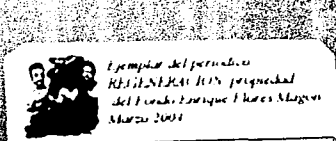 Ejemplar del periodico
REGENERACION, propiedad
del Fondo Enrique Flores Magon
Marzo 2004